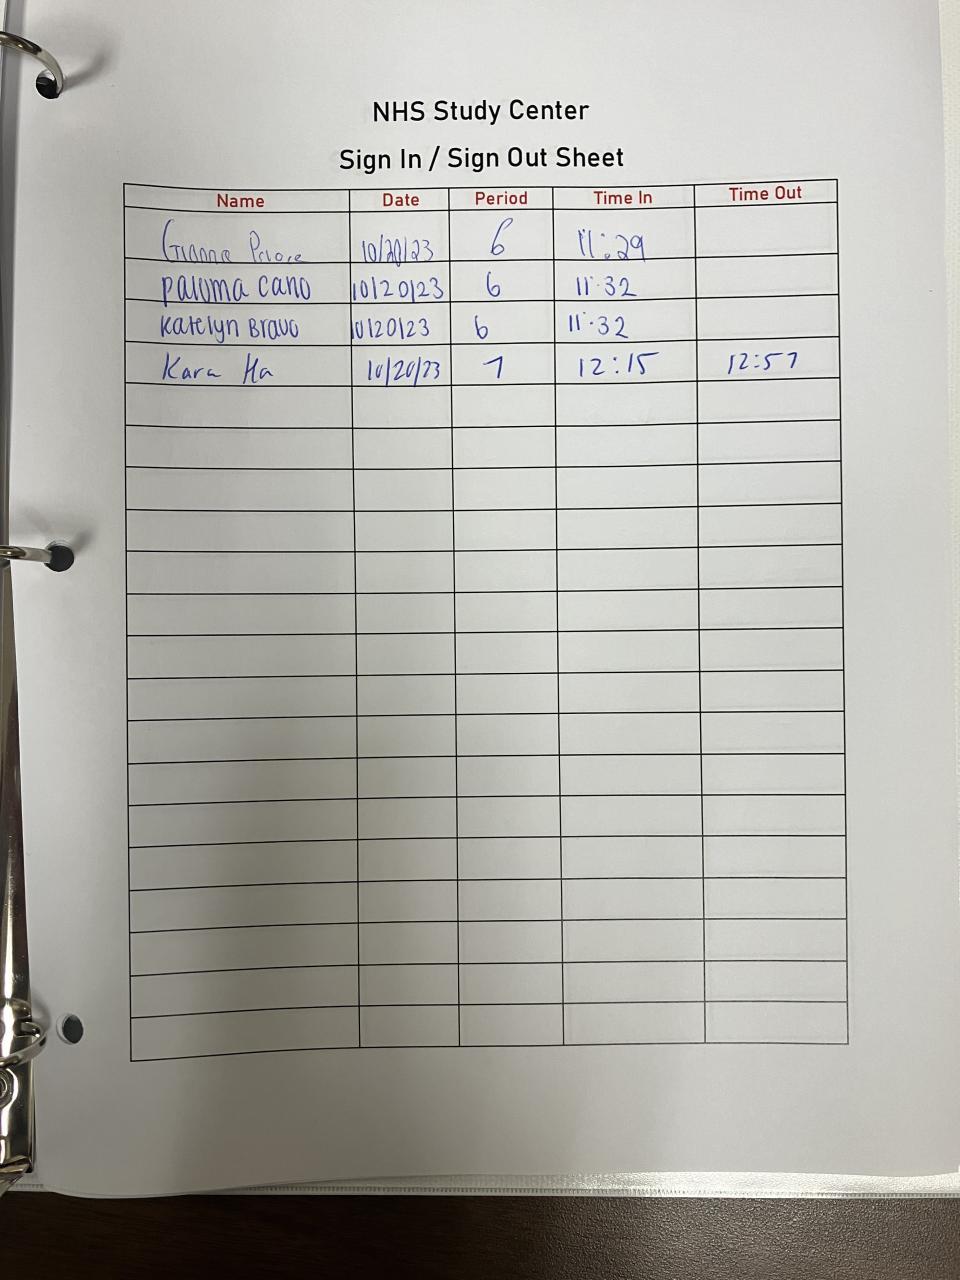 NHS Study Center
Sign In / Sign Out Sheet
Name Date Period Time In Time Out
Gianna 10/20/23 6 11:29
paloma cano 10/20/23 6 11:32
Katelyn Bravo 10/20/23 6 11:32
Kara Ha 10/20/23 7 12:15 12:57